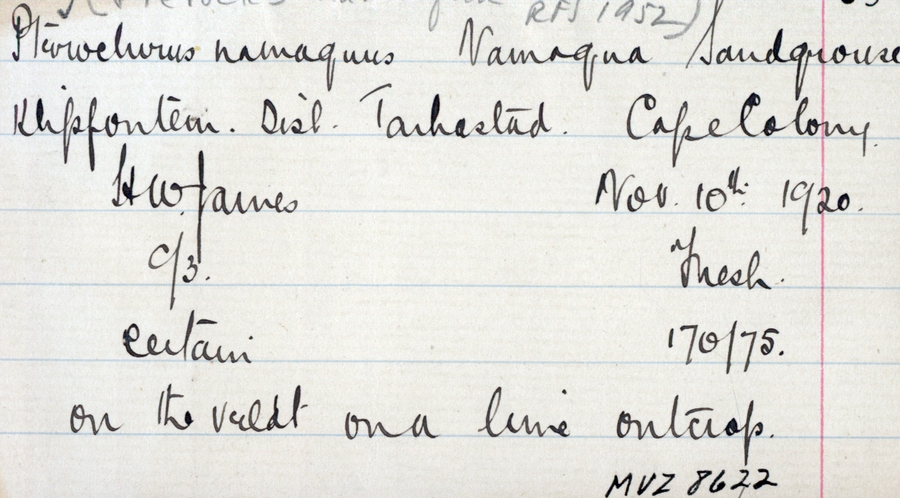 RFS 1952)
Pterochurus namaquus Namaqua Sandgrouse
Klipfontein. Dist. Tarkastad. Cape Colony.
H.W. James Nov. 10th. 1920.
C/3. Fresh.
Certain 170/75.
on the veldt on a lime outcrop.
MVZ 8622